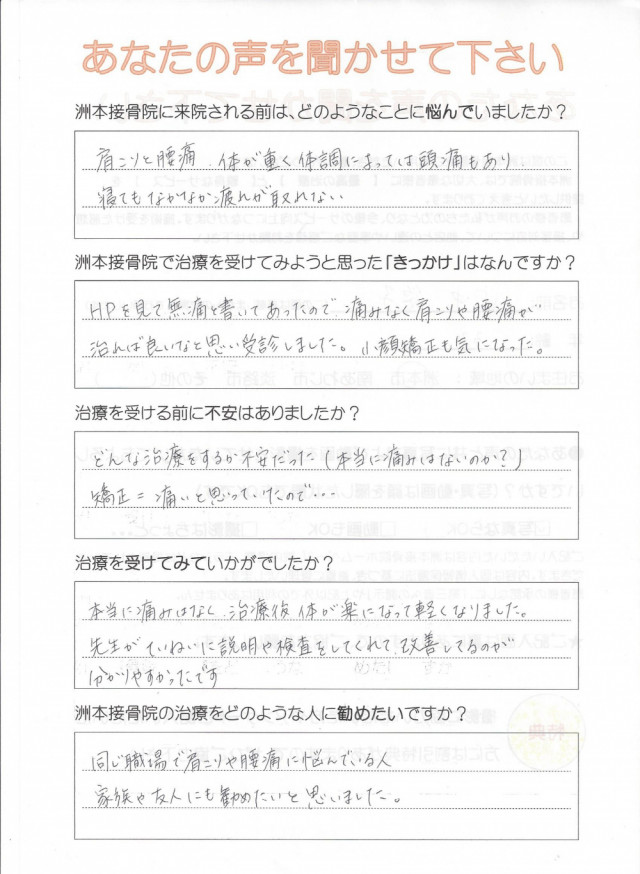 あなたの声を聞かせて下さい
洲本接骨院に来院される前は、どのようなことに悩んでいましたか？
肩こりと腰痛、体が重く体調によっては頭痛もあり
寝てもなかなか疲れが取れない
洲本接骨院で治療を受けてみようと思った「きっかけ」はなんですか？
HPを見て無痛と書いてあったので痛みなく肩こりや腰痛が
治れば良いなと思い受診しました。小顔矯正も気になった。
治療を受ける前に不安はありましたか？
どんな治療をするか不安だった（本当に痛みはないのか？）
矯正＝痛いと思っていたので…
治療を受けてみていかがでしたか？
本当に痛みはなく、治療後体が楽になって軽くなりました。
先生がていねいに説明や検査をしてくれて、改善してるのが
分かりやすかったです
洲本接骨院の治療をどのような人に勧めたいですか？
同じ職場で肩こりや腰痛に悩んでいる人
家族や友人にも勧めたいと思いました。
特典